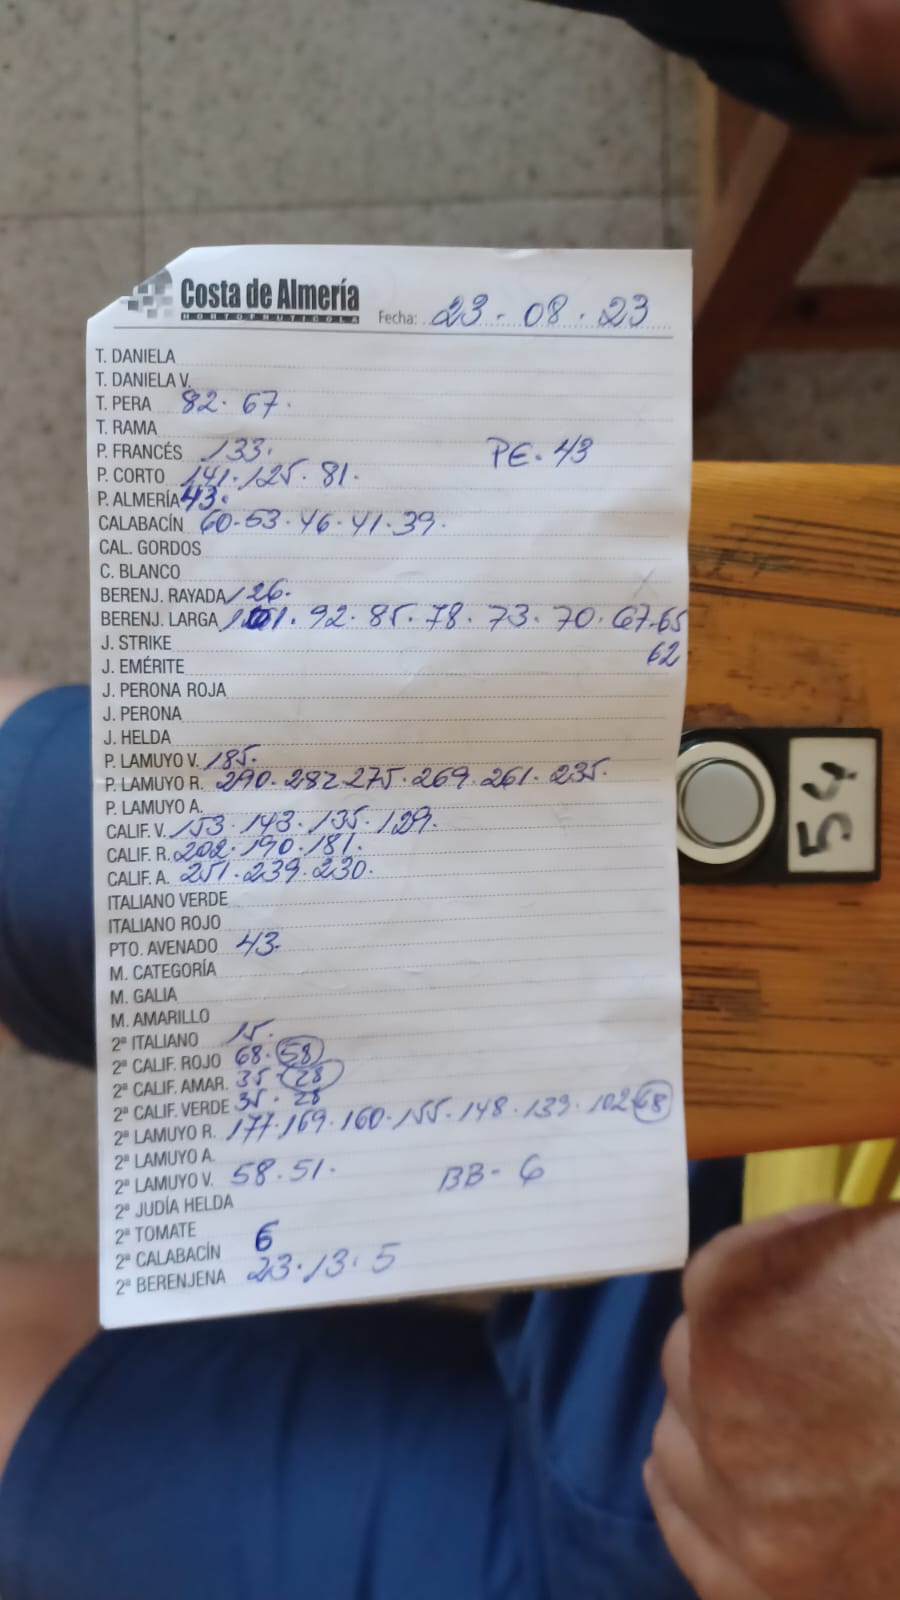 Costa de Almería
HORTOFRUTICOLA
Fecha: 23 · 08 · 23
T. DANIELA
T. DANIELA V.
T. PERA 82 · 67 ·
T. RAMA
P. FRANCÉS 133 · PE · 43
P. CORTO 141 · 125 · 81 ·
P. ALMERÍA 43 ·
CALABACÍN 60 · 53 · 46 · 41 · 39 ·
CAL. GORDOS
C. BLANCO
BERENJ. RAYADA 126 ·
BERENJ. LARGA 101 · 92 · 85 · 78 · 73 · 70 · 67 · 65
J. STRIKE 62
J. EMÉRITE
J. PERONA ROJA
J. PERONA
J. HELDA
P. LAMUYO V. 185 ·
P. LAMUYO R. 290 · 282 275 · 269 · 261 · 235 ·
P. LAMUYO A.
CALIF. V. 153 · 143 · 135 · 129 ·
CALIF. R. 202 · 190 · 181 ·
CALIF. A. 251 · 239 · 230 ·
ITALIANO VERDE
ITALIANO ROJO
PTO. AVENADO 43 ·
M. CATEGORÍA
M. GALIA
M. AMARILLO
2ª ITALIANO 15 ·
2ª CALIF. ROJO 68 · 58
2ª CALIF. AMAR. 35 · 28
2ª CALIF. VERDE 35 · 28
2ª LAMUYO R. 177 · 169 · 160 · 155 · 148 · 139 · 102 · 68
2ª LAMUYO A.
2ª LAMUYO V. 58 · 51 · BB - 6
2ª JUDÍA HELDA
2ª TOMATE
2ª CALABACÍN 6
2ª BERENJENA 23 · 13 · 5
54